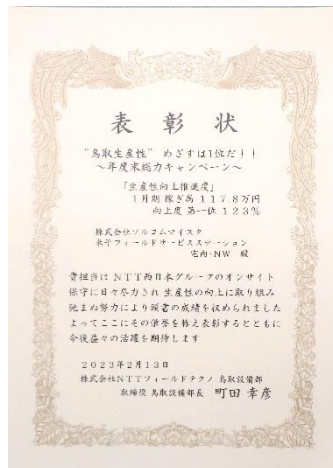 表彰状
“鳥取生産性” めざすは1位だ！！
～年度末総力キャンペーン～
「生産性向上推進度」
1月期 稼ぎ高 117.8万円
向上度 第一位 123%
株式会社ソルコムマイスタ
米子フィールドサービスステーション
宅内・NW 殿
貴担当は NTT西日本グループのオンサイト
保守に日々尽力され 生産性の向上に取り組み
弛まぬ努力により 頭書の成績を収められました
よってここにその栄誉を称え表彰するとともに
今後益々の活躍を期待します
2023年2月13日
株式会社NTTフィールドテクノ 鳥取設備部
取締役 鳥取設備部長 町田 幸彦